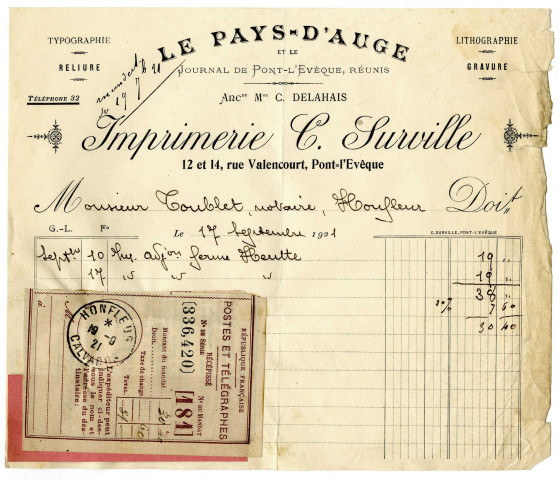 TYPOGRAPHIE
RELIURE
TÉLÉPHONE 32
LE PAYS-D'AUGE
ET LE
JOURNAL DE PONT-L'EVÊQUE, RÉUNIS
LITHOGRAPHIE
GRAVURE
ANCne Mon C. DELAHAIS
Imprimerie C. Surville
12 et 14, rue Valencourt, Pont-l'Evêque
Monsieur Toublet, notaire, Honfleur Doit
G.-L. Fo Le 17 Septembre 1921
C. SURVILLE, PONT-L'EVÊQUE
Septre 10 adjon ferme 19 "
17 " " " 19 "
38 "
20% 7 60
30 40
HONFLEUR
19 -9
21
CALVADOS
RÉPUBLIQUE FRANÇAISE
POSTES ET TÉLÉGRAPHES
No DE SÉRIE
(336,420)
RÉCÉPISSÉ
No DU MANDAT
181
Montant du mandat
Droit
Taxe de change
TOTAL
L'expéditeur peut
indiquer ci-des-
sous le nom et
l'adresse du des-
tinataire:
M
à